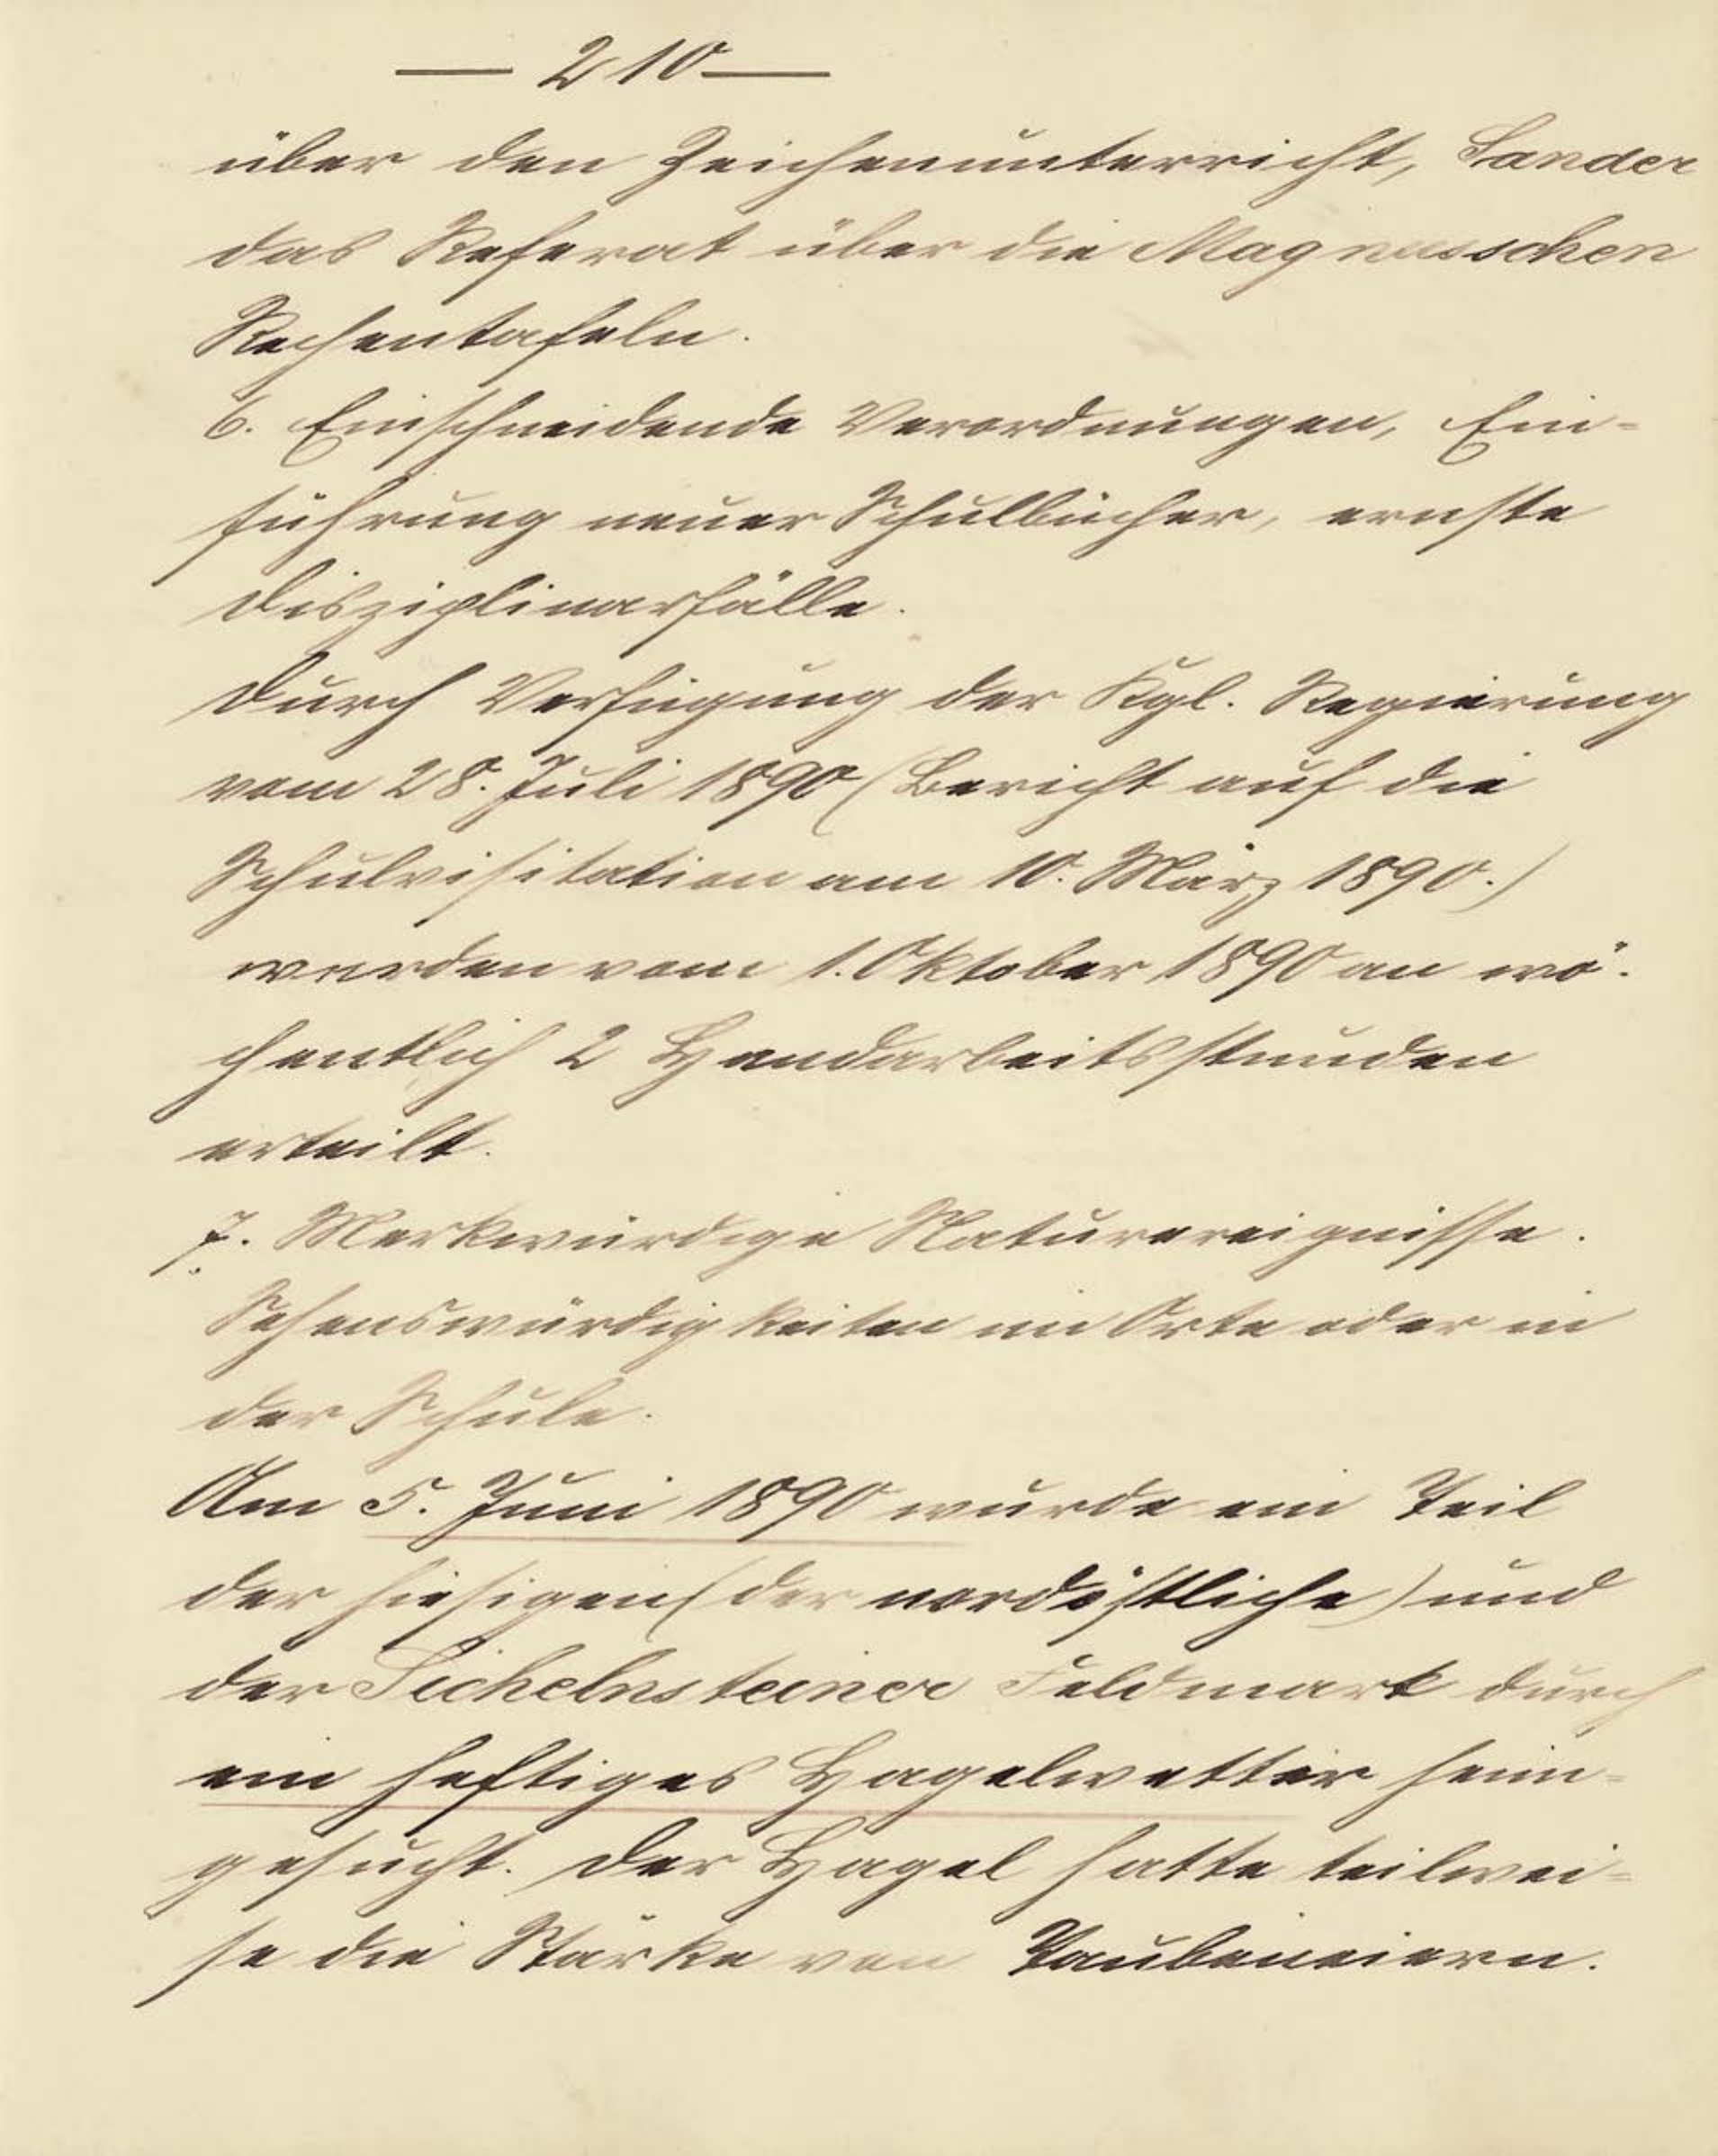 — 210 —
über den Zeichenunterricht, Sander
das Referat über die Magnusschen
Rechentafeln.
6. Einschneidende Verordnungen, Ein-
führung neuer Schulbücher, ernste
Disziplinarfälle.
Durch Verfügung der Kgl. Regierung
vom 28. Juli 1890 (Bericht auf die
Schulvisitation am 10. März 1890.)
werden vom 1. Oktober 1890 an wö-
chentlich 2 Handarbeitsstunden
erteilt.
7. Merkwürdige Naturereignisse.
Sehenswürdigkeiten im Orte oder in
der Schule.
Am 5. Juni 1890 wurde ein Teil
der hiesigen (der nordöstliche) und
der Sichelnsteiner Feldmark durch
ein heftiges Hagelwetter heim-
gesucht. Der Hagel hatte teilwei-
se die Stärke von Taubeneiern.